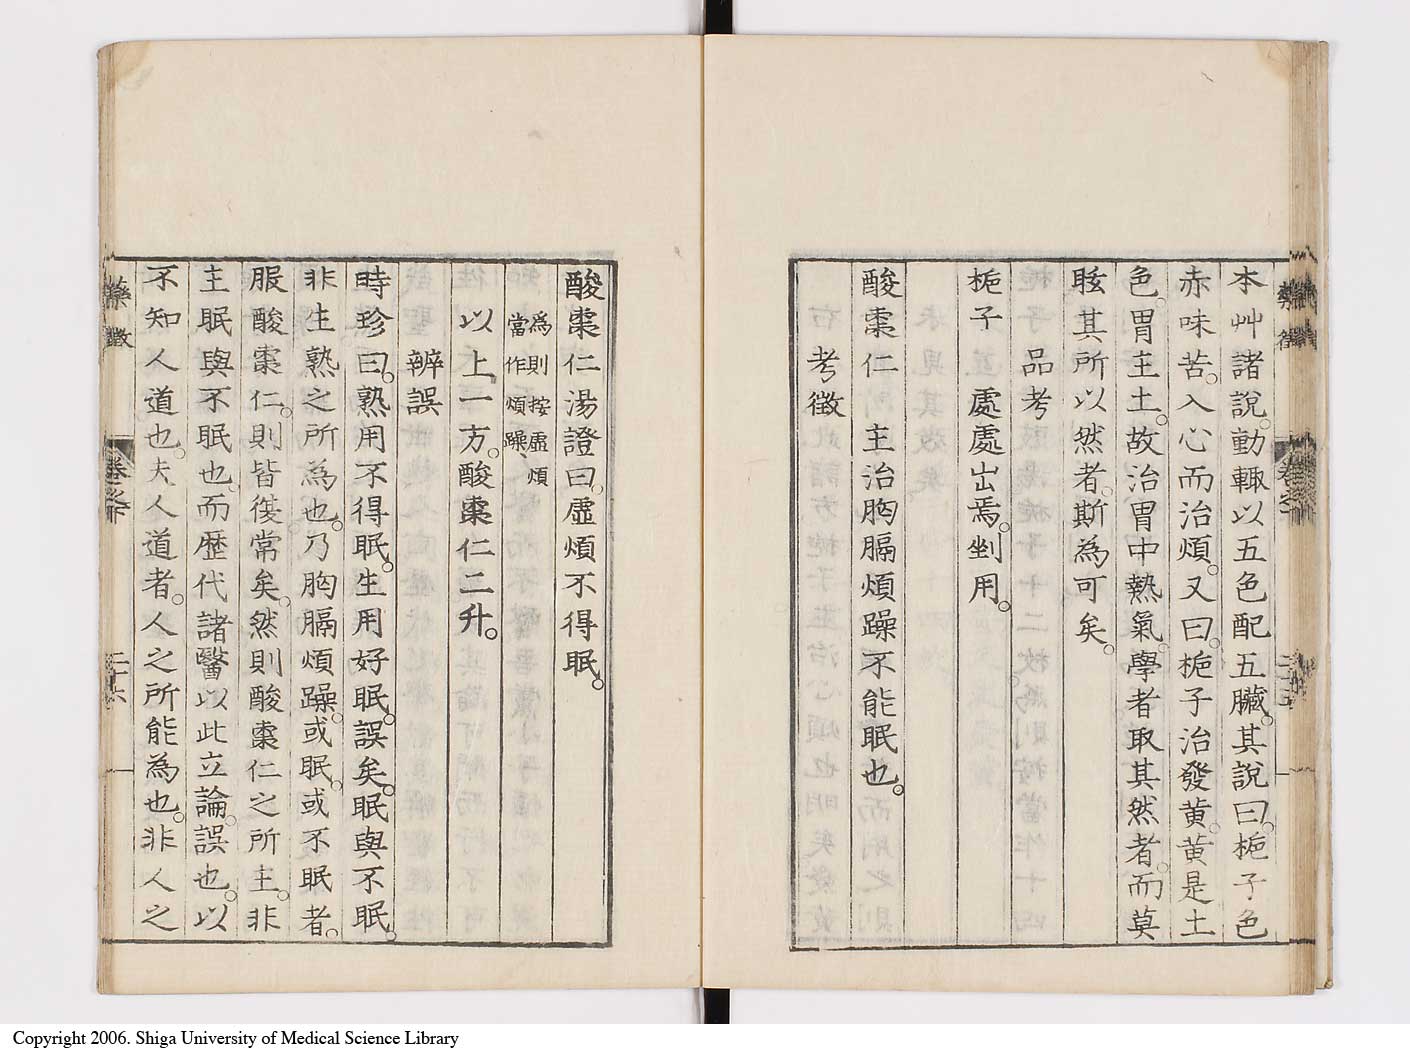 本艸諸說。動輒以五色配五臟。其說曰。梔子色
赤味苦。入心而治煩。又曰。梔子治發黄。黄是土
色。胃主土。故治胃中熱氣。學者取其然者。而莫
眩其所以然者。斯為可矣。
品考
梔子 處處出焉。剉用。
酸棗仁 主治胸膈煩躁不能眠也。
考徵
酸棗仁湯證曰。虛煩不得眠。
為則按虛煩
當作煩躁、
以上一方。酸棗仁二升。
辨誤
時珍曰。熟用不得眠。生用好眠。誤矣。眠與不眠。
非生熟之所為也。乃胸膈煩躁。或眠。或不眠者。
服酸棗仁。則皆復常矣。然則酸棗仁之所主。非
主眠與不眠也。而歷代諸醫以此立論。誤也。以
不知人道也。夫人道者。人之所能為也。非人之
藥徵
卷之下
二十六
Copyright 2006. Shiga University of Medical Science Library